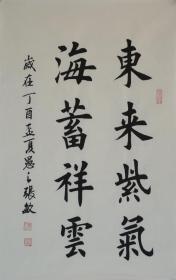 東来紫氣
海蓄祥雲
歲在丁酉孟夏愚之張敏